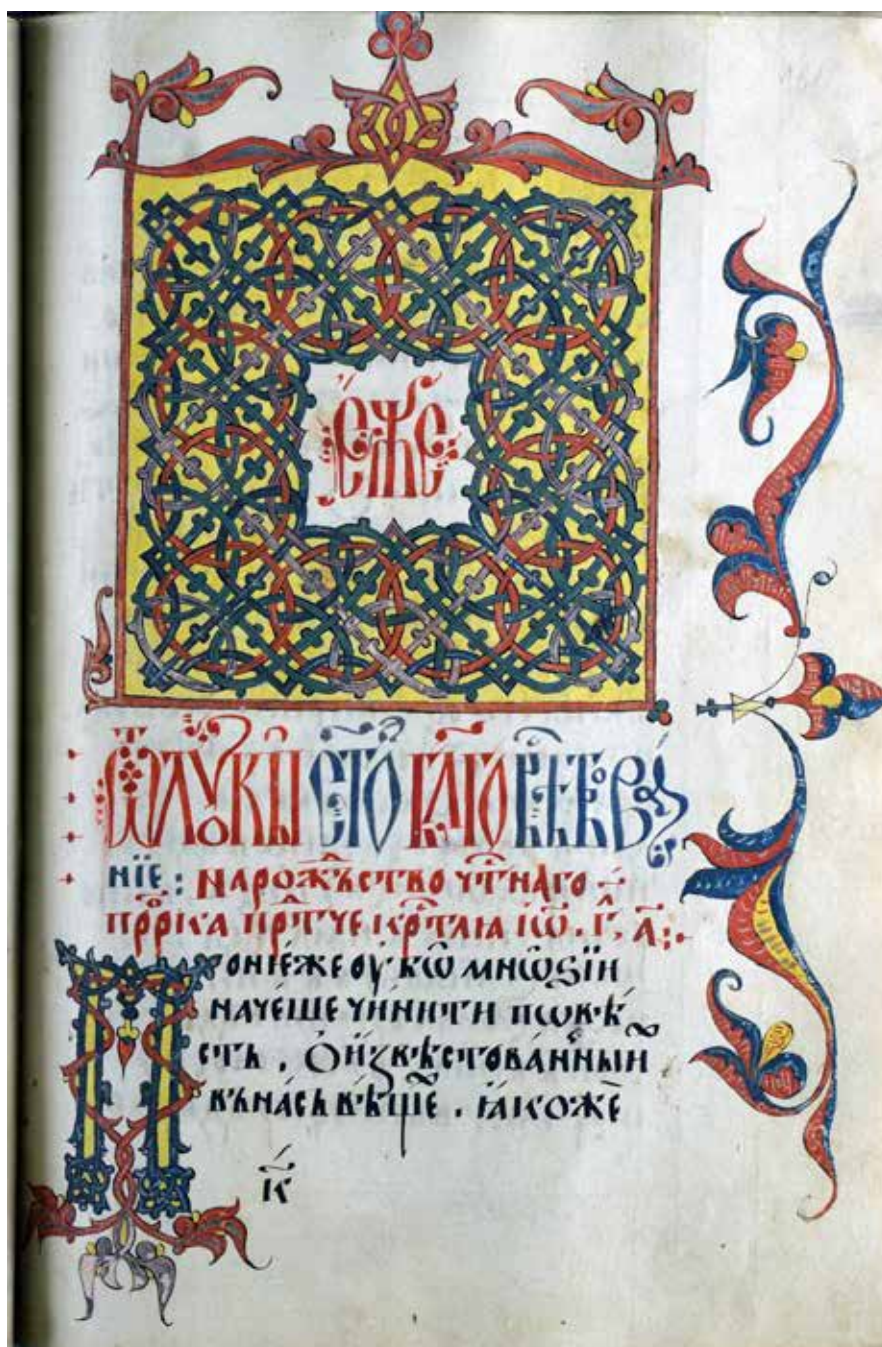 є҆́же
Ѿ лꙋкы ст҃о бл҃го вѣствова
нїе : на рожⷣьство чтⷭ҇наго
прⷪ҇рка прⷣтче крⷭ҇тлꙗ іѡ҃ . г҃л , а҃ :·
Понїє́же оу҆́бѡ мнѡѕїи
наче́ше чи́нити пѡвѣ́
сть . О и҆звѣствова́нныи҆х
въ на́съ вѣ́щеⷯ . ꙗ҆́коже
к҃